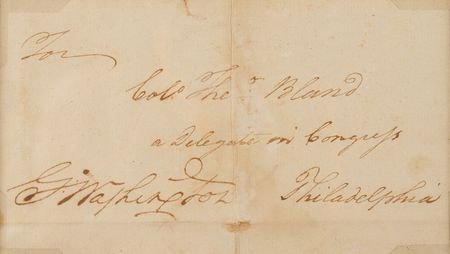 For
Colo. Theok. Bland
a Delegate in Congress
G Washington Philadelphia